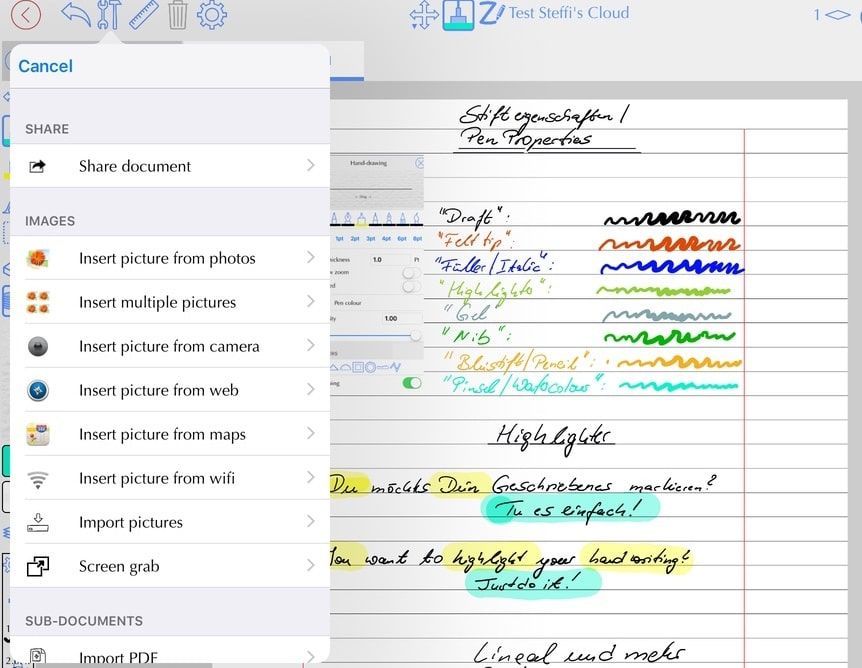 Test Steffi's Cloud
1
Cancel
SHARE
Share document
IMAGES
Insert picture from photos
Insert multiple pictures
Insert picture from camera
Insert picture from web
Insert picture from maps
Insert picture from wifi
Import pictures
Screen grab
SUB-DOCUMENTS
Import PDF
Stifteigenschaften /
Pen Properties
Hand-drawing
1pt 2pt 3pt 4pt 6pt 8pt
1.0 Pt
zoom
Pen colour
1.00
"Draft":
"Felt tip":
"Füller/Italic":
"Highlighter":
"Gel":
"Nib":
"Bleistift/Pencil":
"Pinsel/Watercolour":
Highlighter
Du möchtest Dein Geschriebenes markieren?
Tu es einfach!
You want to highlight your handwriting?
Just do it!
Lineal und mehr